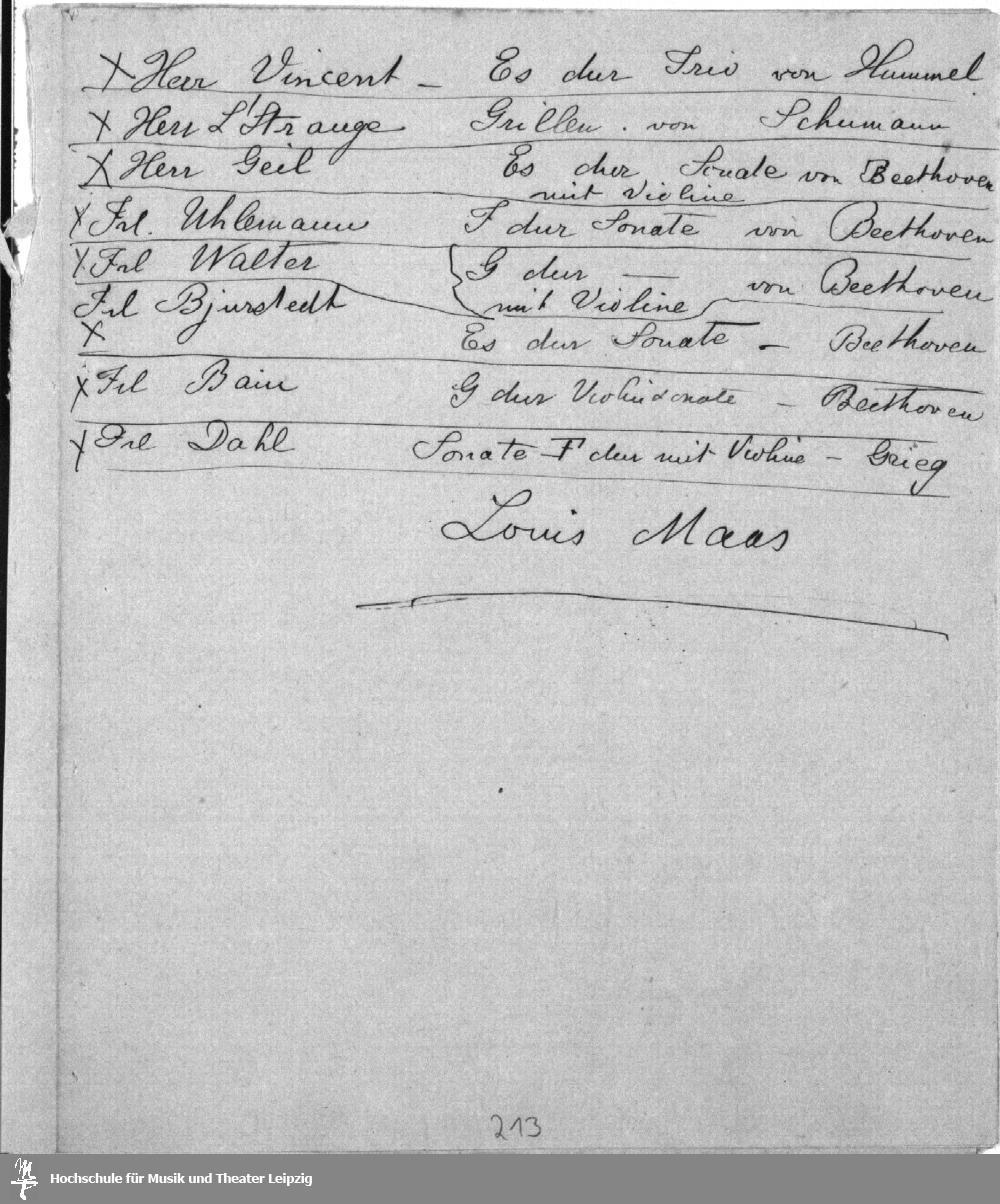 X Herr Vincent – Es dur Trio von Hummel
X Herr L'Strange Grillen . von Schumann
X Herr Geil Es dur Sonate von Beethoven
mit Violine
X Frl. Uhlemann F dur Sonate von Beethoven
X Frl Walter { G dur — von Beethoven
Frl Bjurstedt mit Violine
X Es dur Sonate – Beethoven
X Frl Bain G dur Violinsonate – Beethoven
X Frl Dahl Sonate F dur mit Violine – Grieg
Louis Maas
213
Hochschule für Musik und Theater Leipzig